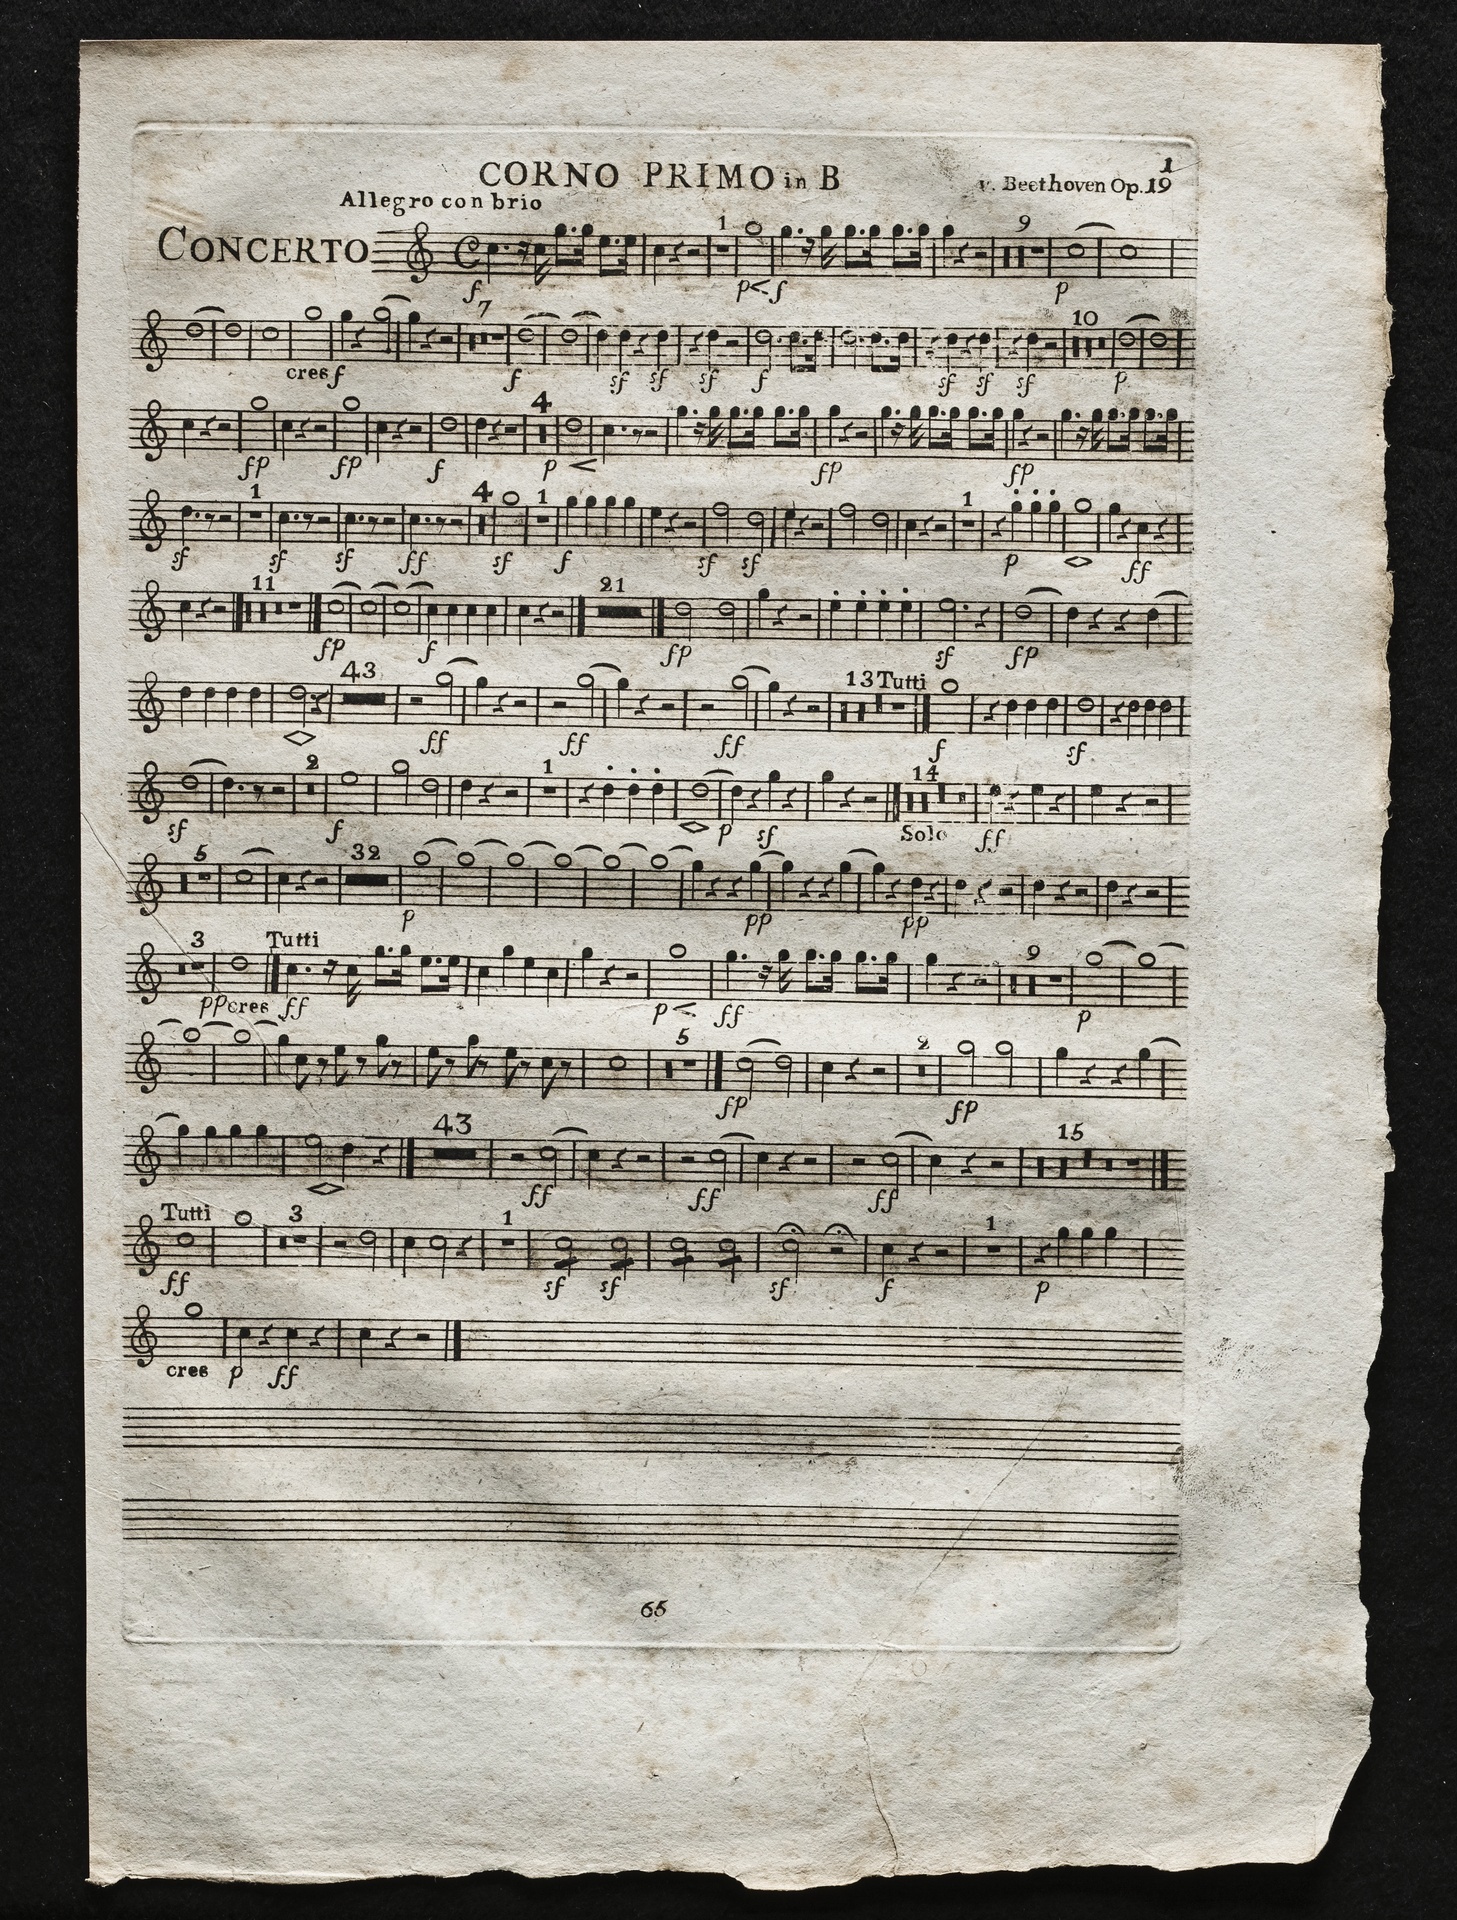 1
CORNO PRIMO in B
v. Beethoven Op.19
Allegro con brio
CONCERTO
1 9
f p f p
7 10
cres f f sf sf sf f sf sf sf p
4
fp fp f p fp fp
1 4 1 1
sf sf sf ff sf f sf sf p ff
11 21
fp f fp sf fp
43 13 Tutti
ff ff ff f sf
2 1 14
sf f p sf Solo ff
5 32
p pp pp
3 Tutti 9
pp cres ff p ff p
5 2
fp fp
43 15
ff ff ff
Tutti 3 1 1
ff sf sf sf f p
cres p ff
65